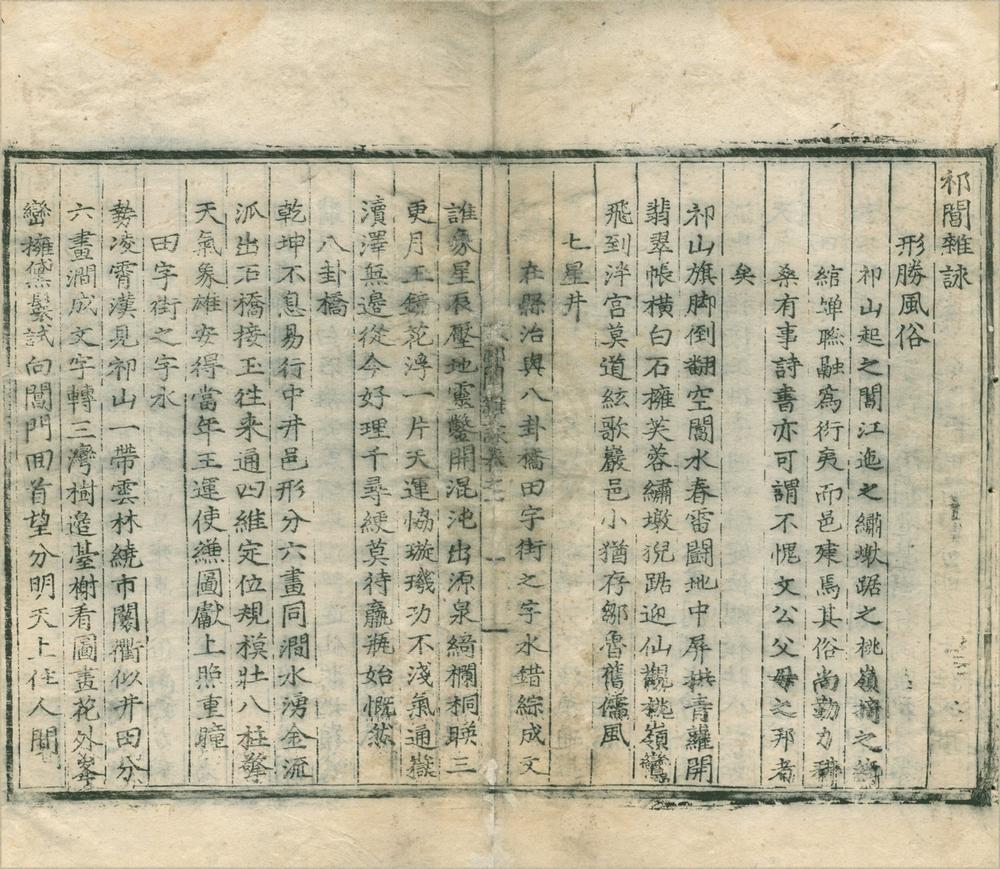 祁閶雜詠
形勝風俗
祁山起之閶江迤之繡墩踞之桃嶺擁之
綰蟬聯融為衍夷而邑奠焉其俗尚勤力穡
桑有事詩書亦可謂不愧文公父母之邦者
矣
祁山旗脚倒翻空閶水春雷鬪地中屏拱青蘿開
翡翠帳橫白石擁芙蓉繡墩猊踞迎仙觀桃嶺鸞
飛到泮宮莫道絃歌巖邑小猶存鄒魯舊儒風
七星井
在縣治與八卦橋田字街之字水錯綜成文
誰象星辰壓地靈鑿開混沌出源泉綺欄桐暎三
更月玉鏡花浮一片天運恊璇璣功不淺氣通嶽
瀆澤無邊從今好理千尋綆莫待羸瓶始慨然
八卦橋
乾坤不息易行中井邑形分六畫同澗水湧金流
派出石橋接玉徃來通四維定位規模壯八柱擎
天氣象雄安得當年王運使繪圖獻上照重瞳
田字街之字水
勢凌霄漢見祁山一帶雲林繞市闤衢似井田分
六畫澗成文字轉三灣樹邉臺榭看圖畫花外峯
巒擁黛鬟試向閶門回首望分明天上住人間